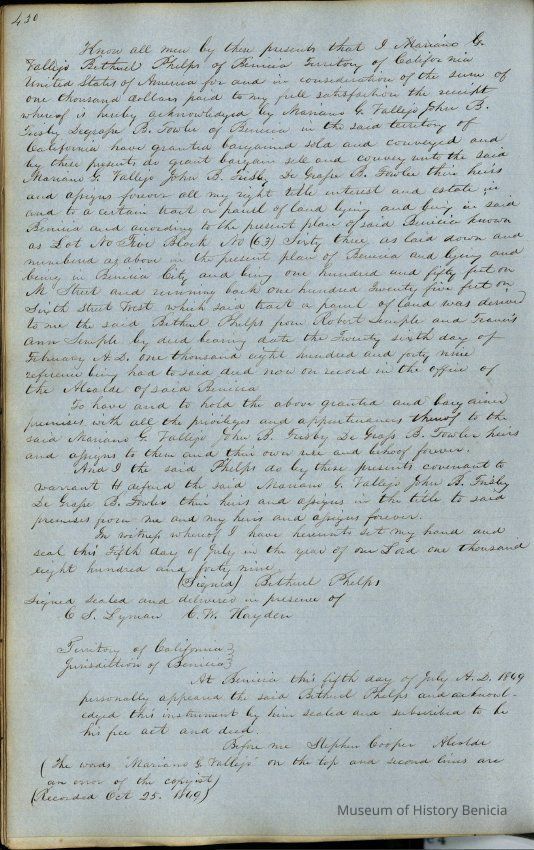 430
Know all men by these presents that I Mariano G.
Vallejo Bethuel Phelps of Benicia Territory of California
United States of America for and in consideration of the sum of
one thousand dollars paid to my full satisfaction the receipt
whereof is hereby acknowledged by Mariano G. Vallejo John B.
Frisby Degrape B. Fowler of Benicia in the said territory of
California have granted bargained sold and conveyed and
by these presents do grant bargain sell and convey unto the said
Mariano G. Vallejo John B. Frisby De Grape B. Fowler their heirs
and assigns forever all my right title interest and estate in
and to a certain tract or parcel of land lying and being in said
Benicia and according to the present plan of said Benicia known
as Lot No Five Block No (63) Sixty three as laid down and
numbered as above in the present plan of Benicia and lying and
being in Benicia City and being one hundred and fifty feet on
M Street and running back one hundred twenty five feet on
Sixth Street West which said tract a parcel of land was derived
to me the said Bethuel Phelps from Robert Semple and Francis
Ann Semple by deed bearing date the Twenty sixth day of
February A.D. one thousand eight hundred and forty nine
reference being had to said deed now on record in the office of
the Alcalde of said Benicia
To have and to hold the above granted and bargained
premises with all the privileges and appurtenances thereof to the
said Mariano G. Vallejo John B. Frisby De Grass B. Fowler heirs
and assigns to them and their own use and behoof forever.
And I the said Phelps do by these presents covenant to
warrant & defend the said Mariano G. Vallejo John B. Frisby
De Grape B. Fowler their heirs and assigns in the title to said
premises from me and my heirs and assigns forever.
In witness whereof I have hereunto set my hand and
seal this Fifth day of July in the year of our Lord one thousand
eight hundred and forty nine
(Signed) Bethuel Phelps
Signed sealed and delivered in presence of
C S. Lyman C. W. Hayden
Territory of California }
Jurisdiction of Benicia }
At Benicia this fifth day of July A.D. 1849
personally appeared the said Bethuel Phelps and acknowl-
edged this instrument by him sealed and subscribed to be
his free act and deed.
Before me Stephen Cooper Alcalde
(The words "Mariano G. Vallejo" on the top and second lines are
an error of the copyist)
(Recorded Oct 25. 1849)
Museum of History Benicia